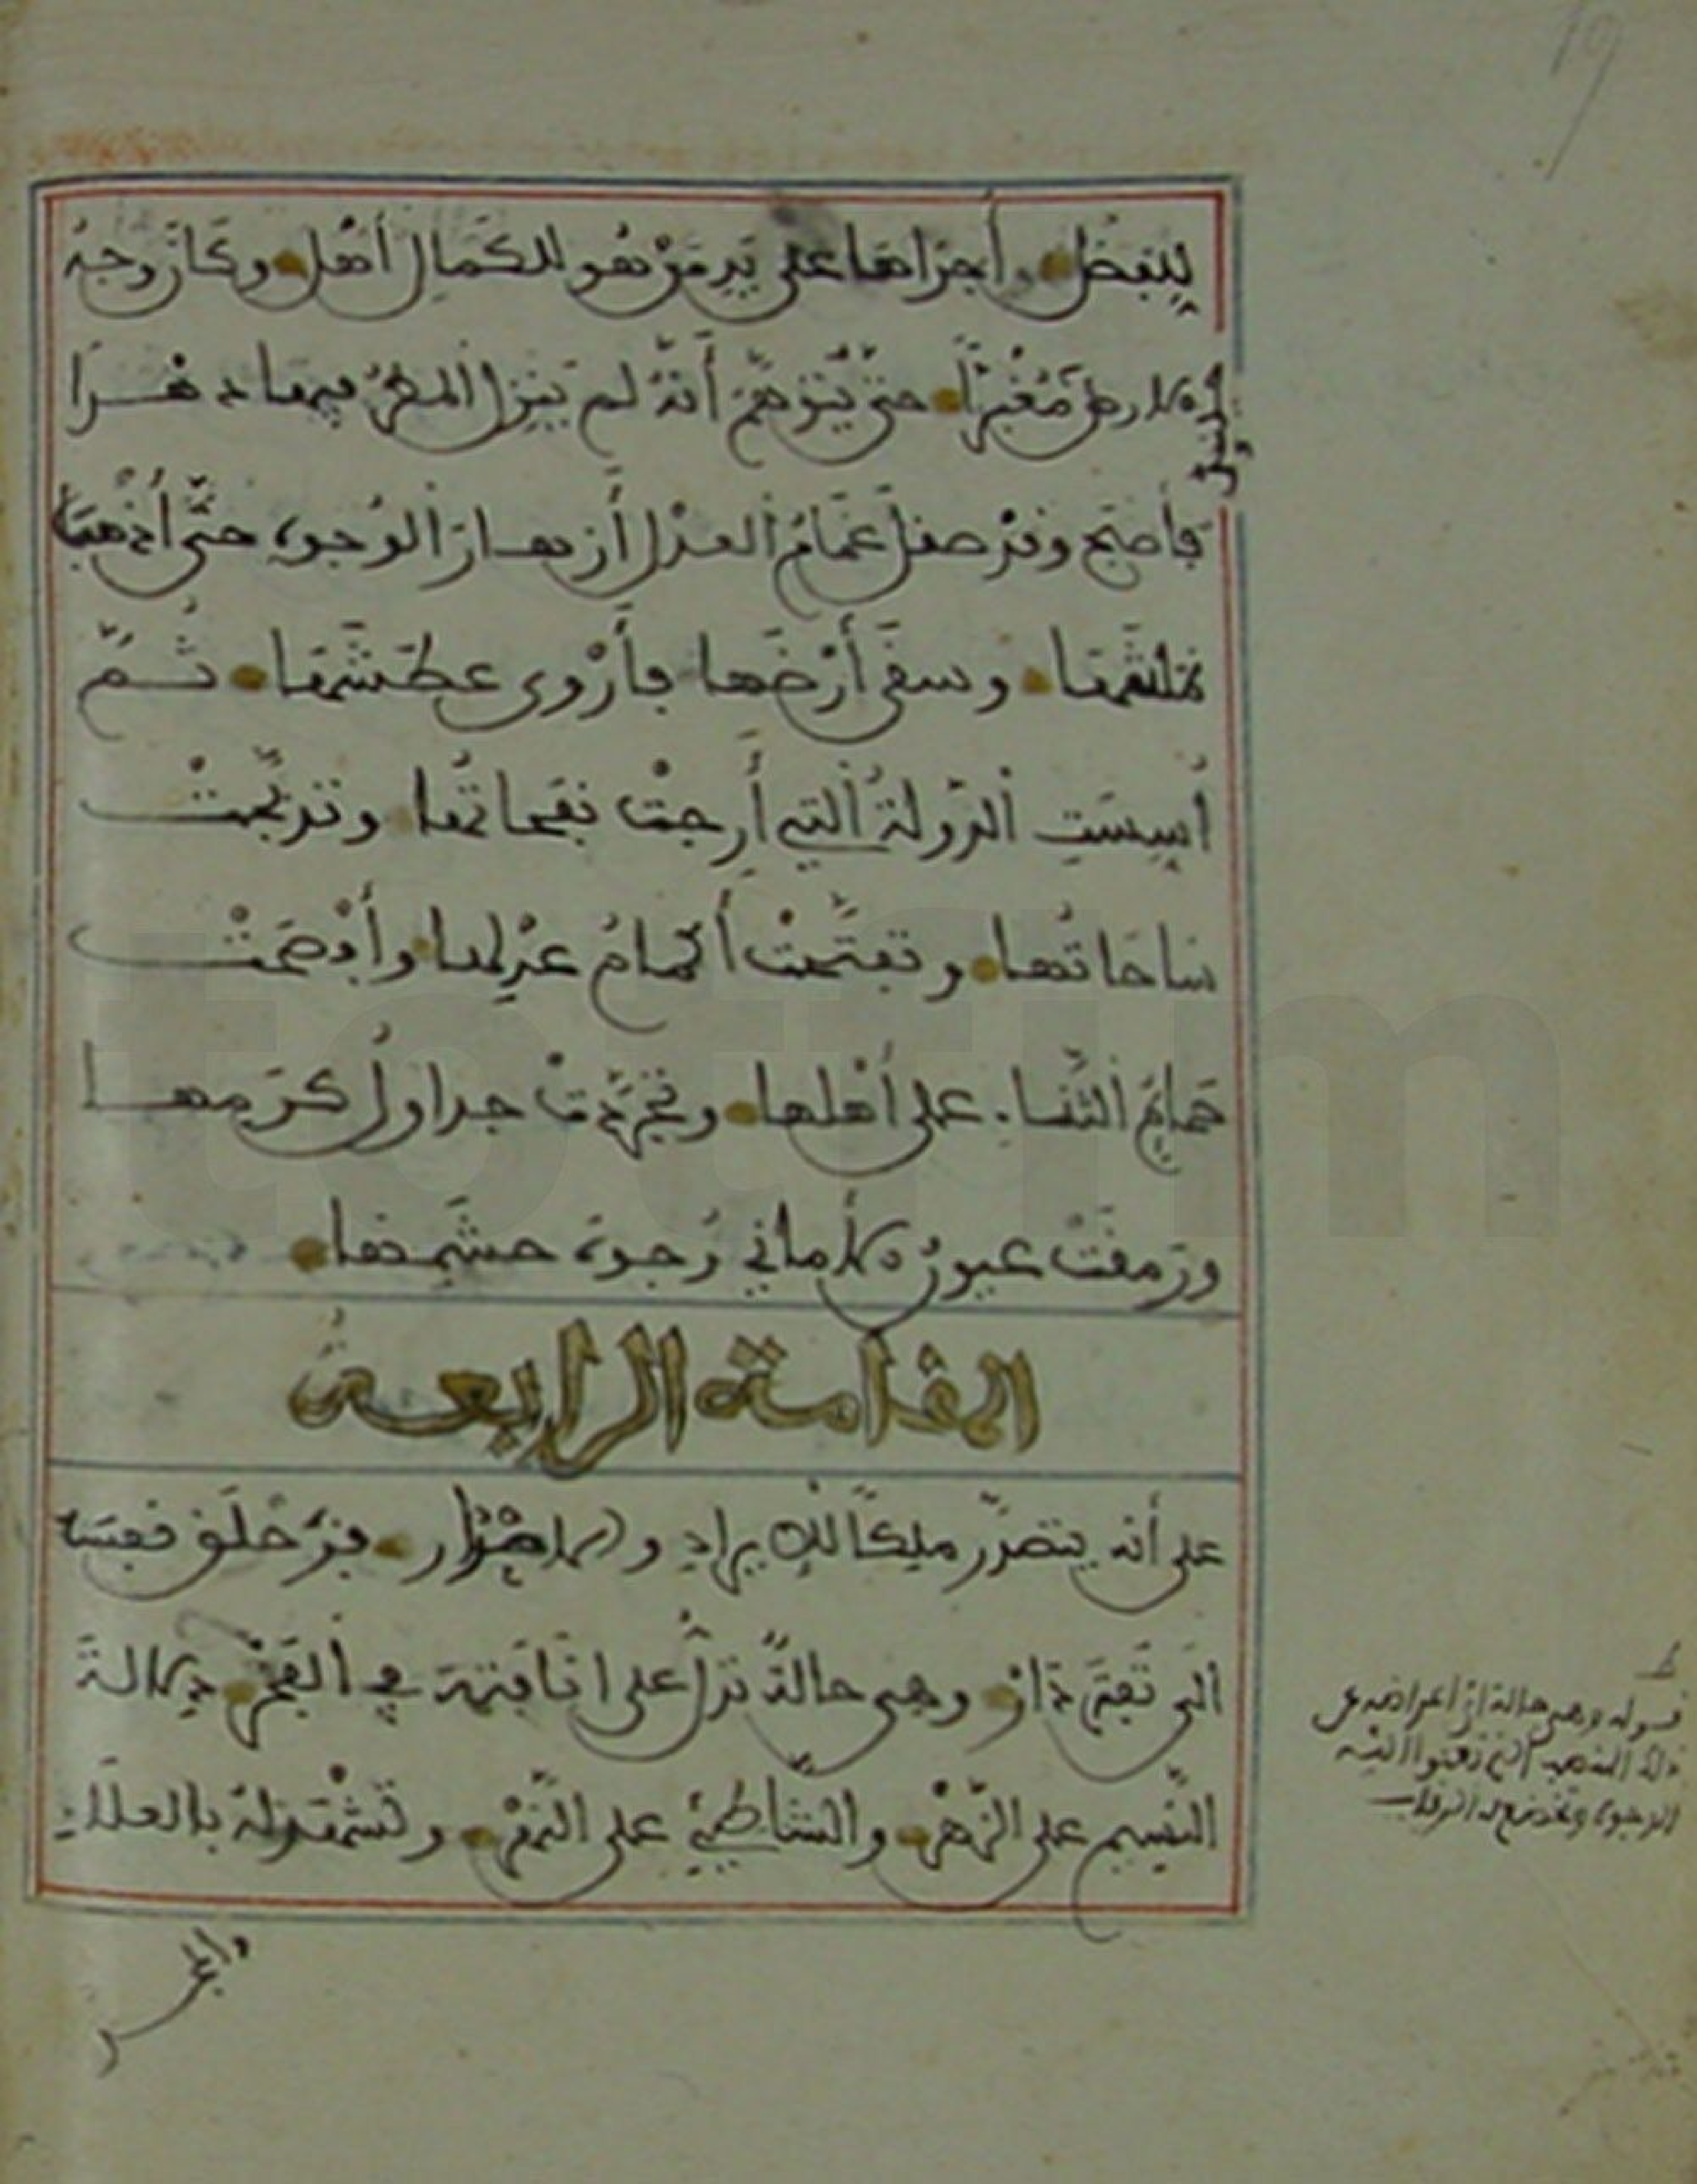 19
للفضل وأجراها على يد من هو للكمال أهل وكان وجه
الارض مغبرا حتى يتوهم أنه لم ينزل المطر فيها دهرا
فأصبح وقد صقل غمام العدل أزهار الوجوه حتى أذهب
وسقى أرضها فأروى عطشها ثم
أسست الدولة التي أرجت نفحاتها وتدبجت
ساحاتها وتفتحت أكمام عدلها وأفصحت
حمايم الثناء على أهلها وتفجرت جداول كرمها
ورمقت عيون الاماني وجوه حشمها
المقامة الرابعة
على أنه يتصدر ملكا للإيراد والإصدار فد خلق نفسه
الى وهي حالة تدل على في الفخر دلالة
النسيم على الزهر والشاطئ على النهر وتشهد له بالعلاء
قوله وهي حالة اعراضه عن
ذلك المنصب الذي
الوجوه وتخضع له الرقاب
totfim